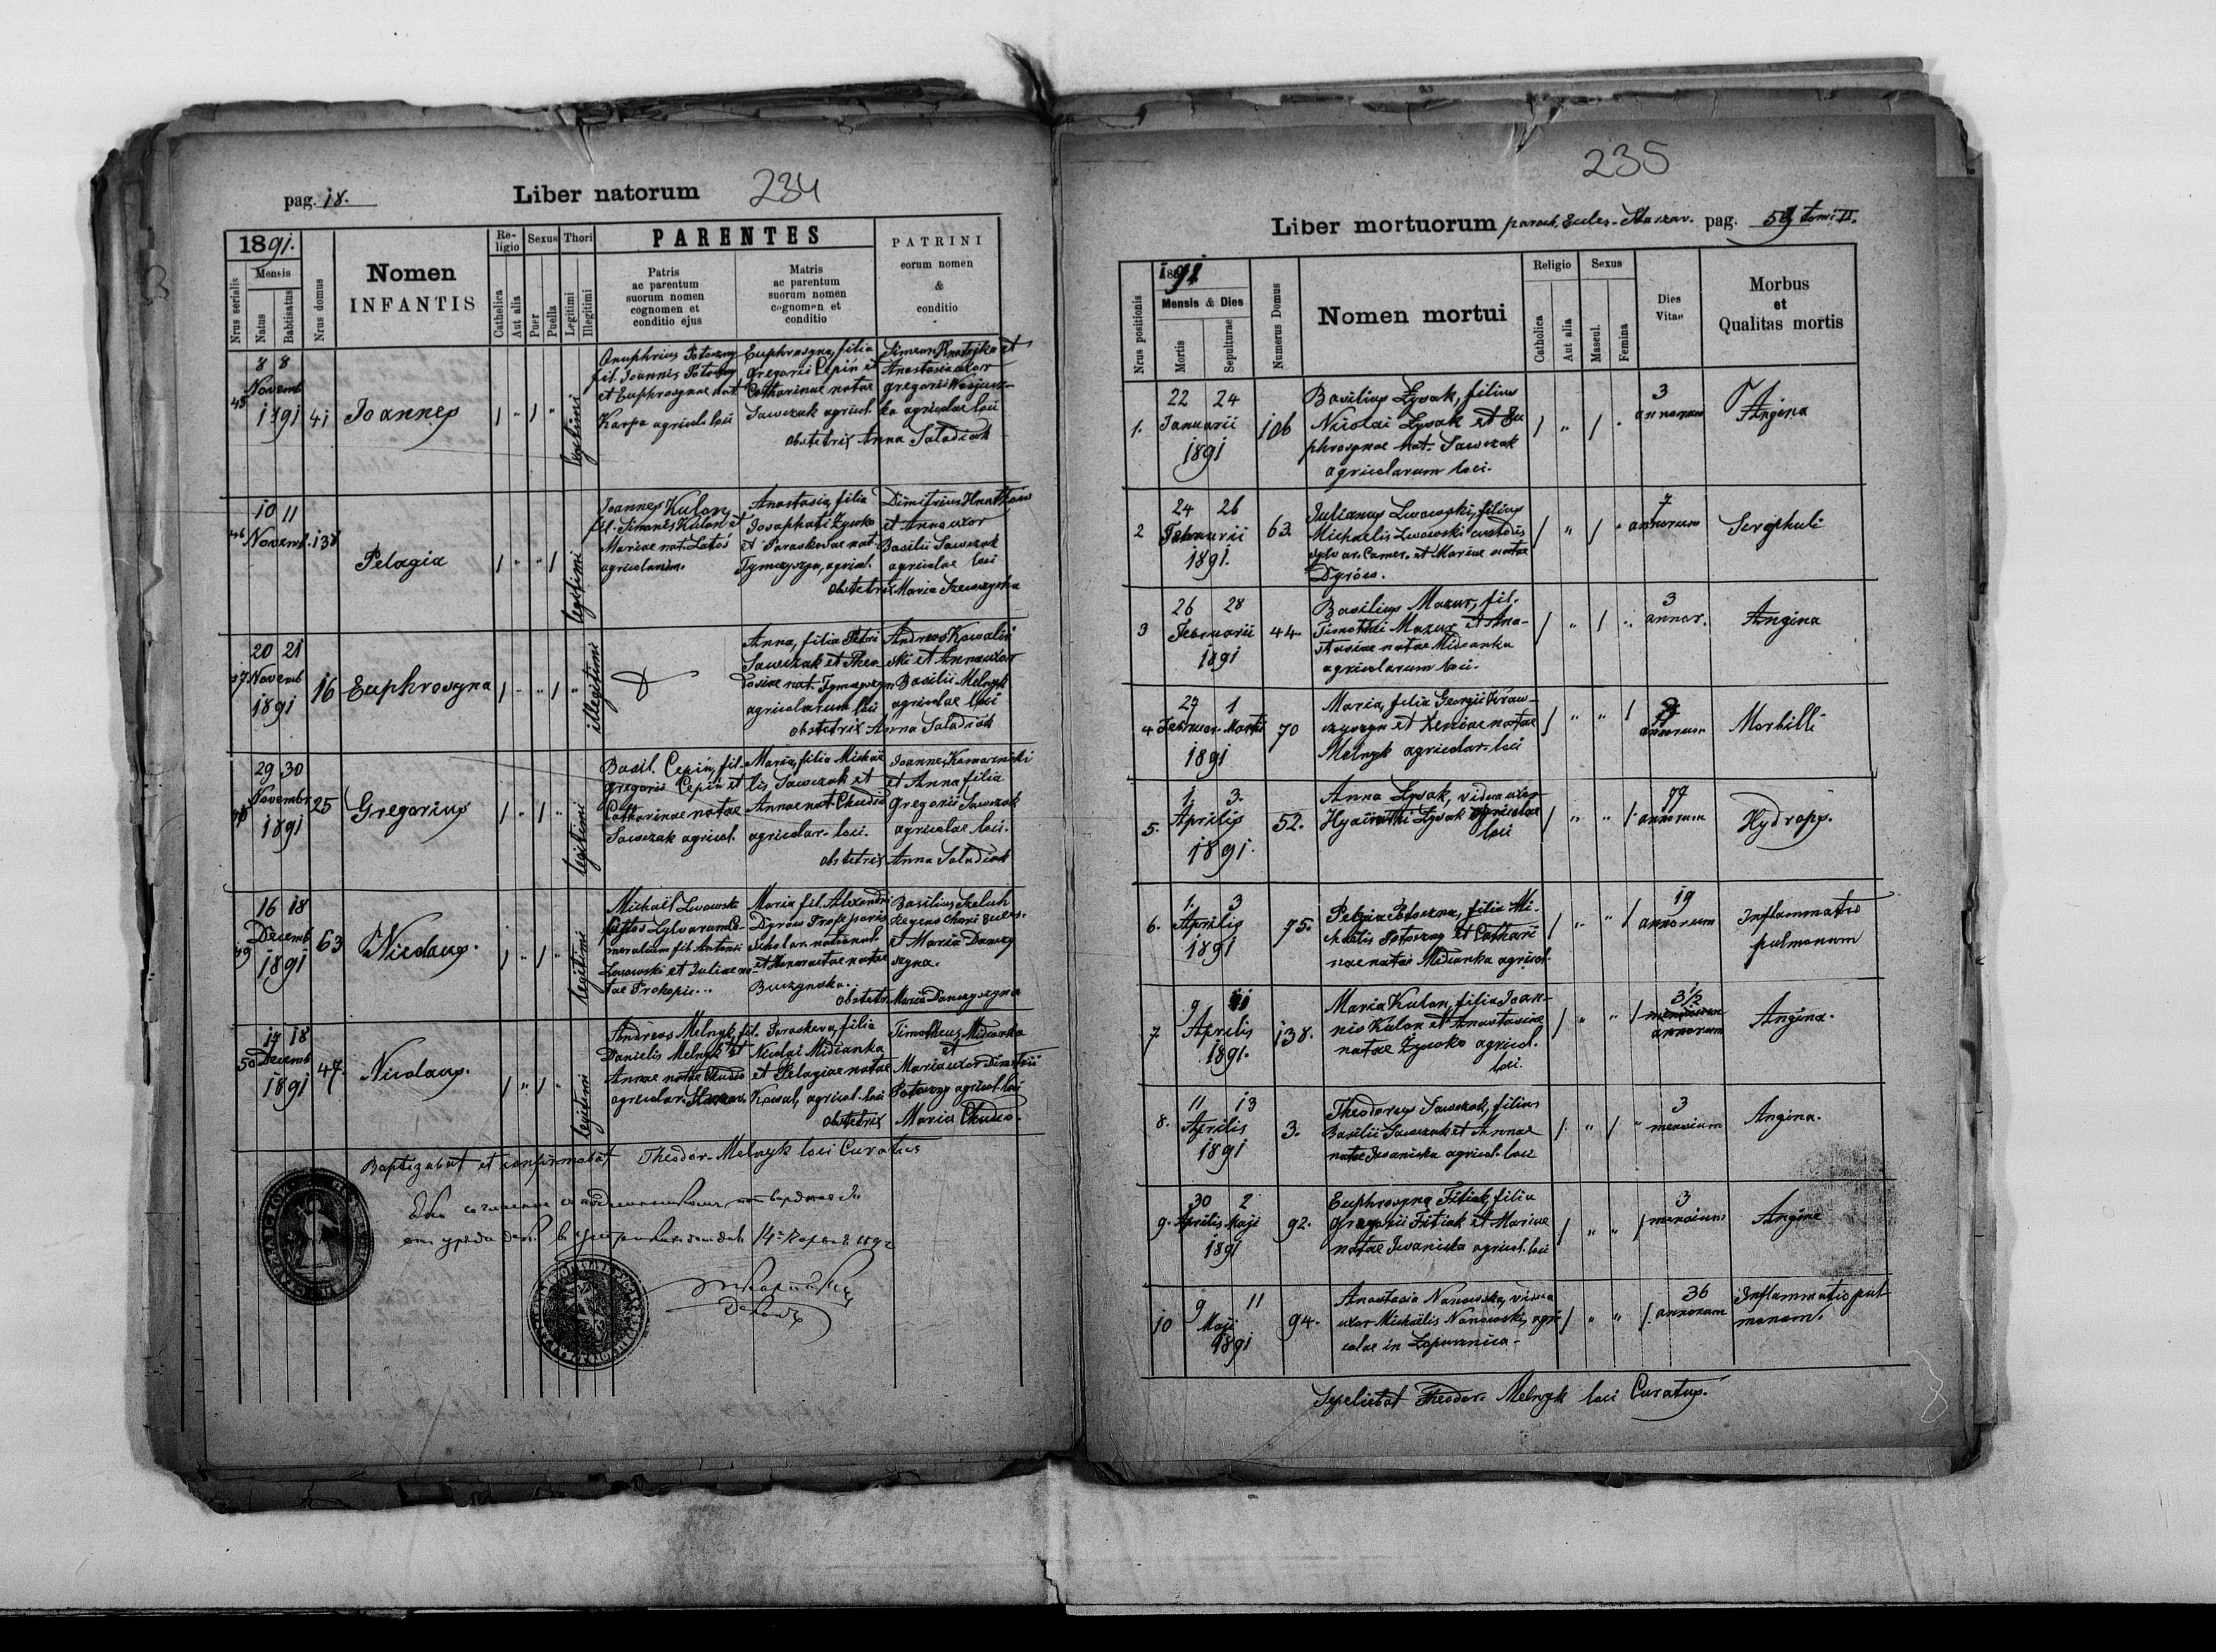 pag. 18.
Liber natorum
234
1891.
Nrus serialis
Mensis
Natus
Babtisatus
Nrus domus
Nomen
INFANTIS
Re-
ligio
Catholica
Aut alia
Sexus
Puer
Puella
Thori
Legitimi
Illegitimi
PARENTES
Patris
ac parentum
suorum nomen
cognomen et
conditio ejus
Matris
ac parentum
suorum nomen
cognomen et
conditio
PATRINI
eorum nomen
&
conditio
45
8 8
Novemb
1891
41
Joannes
legitimi
Onuphrius Potoczny
fil. Joannis Potoczny
et Euphrosynae nat.
Karpa agricol. loci
Euphrosyna, filia
Gregorii Cepin et
Catharinae natae
Sawczak agricol.
Simeon Hnatejko et
Anastasia uxor
Gregorii
agricolae loci
obstetrix Anna Saladiak
46
10 11
Novemb.
138
Pelagia
legitimi
Joannes Kulon
fil. Simonis Kulon et
Mariae nat. Latoś
agricolarum.
Anastasia, filia
Josaphati Zysko
et Paraskevae nat.
agricol.
Dimitrius
et Anna uxor
Basilii Sawczak
agricolae loci
obstetrix Maria
47
20 21
Novemb
1891
16
Euphrosyna
illegitimi
Anna, filia Petri
Sawczak et Theo-
dosiae nat.
agricolarum loci
Andreas Kowalin
ski et Anna uxor
Basilii Melnyk
agricolae loci
obstetrix Anna Saladiak
48
29 30
Novembr
1891
25
Gregorius
legitimi
Basil. Cepin, fil.
Gregorii Cepin et
Catharinae natae
Sawczak agricol.
Maria, filia Michae
lis Sawczak et
Annae nat. Chudio
agricolar. loci.
Joannes Komarnicki
et Anna filia
Gregorii Sawczak
agricolae loci.
obstetrix Anna Saladiak
49
16 18
Decemb
1891
63
Nicolaus.
legitimi
Michail Lwowski
Sylvarum Ca-
meralium fil. Antonii
Lwowski et Juliae na-
tae Prokopic..
Maria fil. Alexandri
Dyrów
scholar. national.
et natae
Buczynska.
Basilius
Regens chori Eccles.
et Maria
obstetr. Maria
50
17 18
Decemb
1891
47.
Nicolaus.
legitimi
Andreas Melnyk, fil.
Danielis Melnyk et
Annae natae Chudio
agricolar.
Paraskeva, filia
Nicolai Midianka
et Pelagiae natae
Kowal, agricol. loci
Timotheus Midianka
et
Maria uxor Dimitrii
Potoczny agricol. loci
obstetrix Maria Chudio.
Baptizabat et confirmabat Theodor. Melnyk loci Curatus
235
Liber mortuorum paroch. Eccles. Starzav. pag. 59 tomi II.
1891
Nrus positionis
Mensis & Dies
Mortis
Sepulturae
Numerus Domus
Nomen mortui
Religio
Catholica
Aut alia
Sexus
Mascul.
Femina
Dies
Vitae
Morbus
et
Qualitas mortis
1.
22 24
Januarii
1891
106
Basilius Łysak, filius
Nicolai Łysak et Eu
phrosynae nat. Sawczak
agricolarum loci.
3
annorum
Angina
2
24 26
Februarii
1891.
63.
Julianus Lwowski, filius
Michaelis Lwowski custodis
sylvar. Camer. et Mariae natae
Dyrów.
7
annorum
Scrophuli
3
26 28
Februarii
1891
44
Basilius Mazur, fil.
Timothei Mazur et Ana-
stasiae natae Midianka
agricolarum loci.
3
annor.
Angina
4
27 1
Februar. Martii
1891
70
Maria, filia Georgii Kraw-
czyszyn et Xeniae natae
Melnyk agricolar. loci
annorum
Morbilli
5.
1. 3.
Aprilis
1891.
52.
Anna Łysak, vidua uxor
Hyacinthi Łysak agricolae
loci
77
annorum
Hydrops.
6.
1. 3
Aprilis
1891
75.
Pelagia Potoczna, filia Mi-
chaelis Potoczny et Cathari
nae natae Midianka agricol.
19
annorum
Inflammatio
pulmonum
7
9 11
Aprilis
1891.
138.
Maria Kulon, filia Joan-
nis Kulon et Anastasiae
natae Zysko agricol.
loci.
3½
annorum
Angina.
8.
11 13
Aprilis
1891
3.
Theodorus Sawczak, filius
Basilii Sawczak et Annae
natae Iwaniska agricol. loci
3
mensium
Angina.
9.
30 2
Aprilis Maji
1891
92.
Euphrosyna Fitiak, filia
Gregorii Fitiak et Mariae
natae Iwaniska agricol. loci
3
mensium
Angina
10
9 11
Maji
1891
94.
Anastasia Nanowska, vidua
uxor Michaelis Nanowski, agri-
colae in Łopusznica.
36
annorum
Inflammatio pul-
monum.
Sepeliebat Theodor. Melnyk loci Curatus.